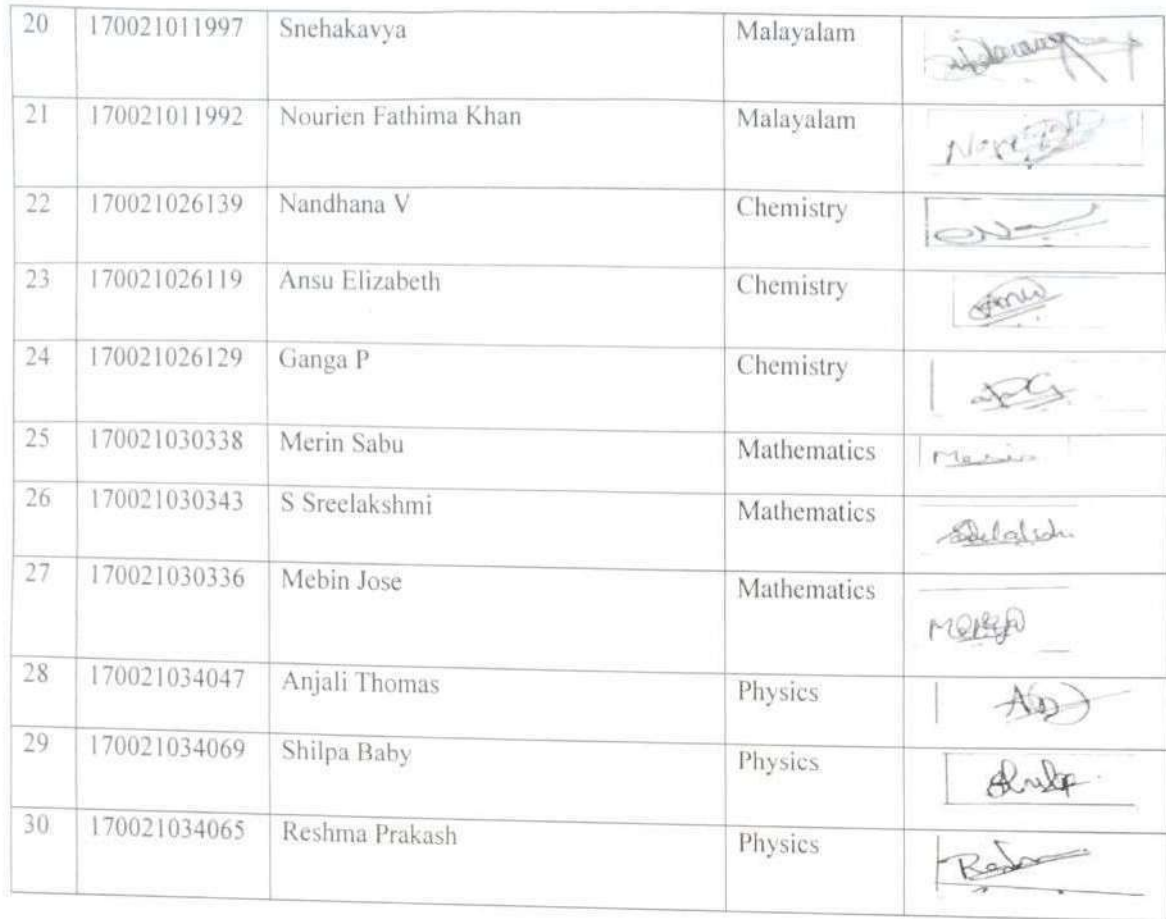 20 170021011997 Snehakavya Malayalam
21 170021011992 Nourien Fathima Khan Malayalam
22 170021026139 Nandhana V Chemistry
23 170021026119 Ansu Elizabeth Chemistry
24 170021026129 Ganga P Chemistry
25 170021030338 Merin Sabu Mathematics Merin
26 170021030343 S Sreelakshmi Mathematics
27 170021030336 Mebin Jose Mathematics
28 170021034047 Anjali Thomas Physics
29 170021034069 Shilpa Baby Physics
30 170021034065 Reshma Prakash Physics